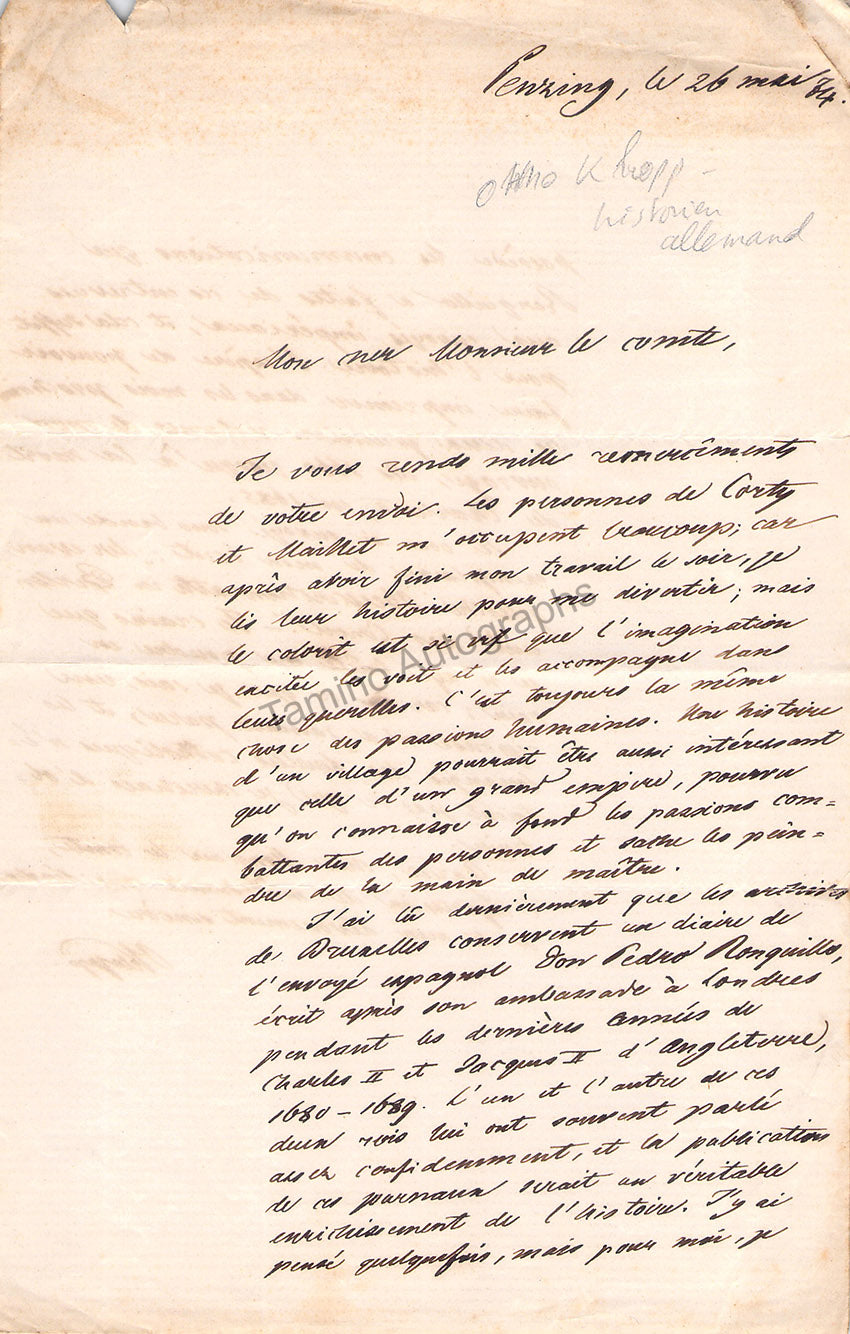 Penzing, le 26 mai 84.
Otto Klopp -
historien
allemand
Mon cher Monsieur le comte,
Je vous rends mille remercîments
de votre envoi. Les personnes de Corty
et Maillet m'occupent beaucoup; car
après avoir fini mon travail le soir, je
lis leur histoire pour me divertir; mais
le colorit est si vif que l'imagination
excitée les voit et les accompagne dans
leurs querelles. C'est toujours la même
chose des passions humaines. Une histoire
d'un village pourrait être aussi intéressant
que celle d'un grand empire, pourvu
qu'on connaisse à fond les passions com=
battantes des personnes et sache les pein=
dre de la main de maître.
J'ai lû dernièrement que les archives
de Bruxelles conservent un diaire de
l'envoyé espagnol Don Pedro Ronquillo,
écrit après son ambassade à Londres
pendant les dernières années de
Charles II et Jacques II d'Angleterre,
1680-1689. L'un et l'autre de ces
deux rois lui ont souvent parlé
assez confidemment, et la publication
de ces journaux serait un véritable
enrichissement de l'histoire. J'y ai
pensé quelquefois, mais pour moi, je
Tamino Autographs